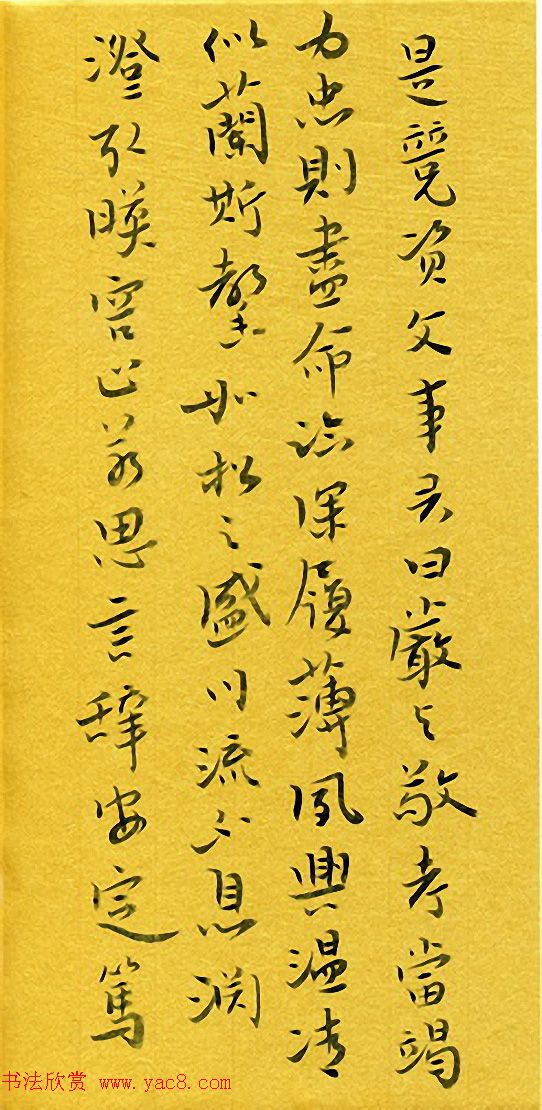 是競資父事君曰嚴與敬孝當竭
力忠則盡命臨深履薄夙興温凊
似蘭斯馨如松之盛川流不息淵
澄取暎容止若思言辭安定篤
书法欣赏 www.yac8.com